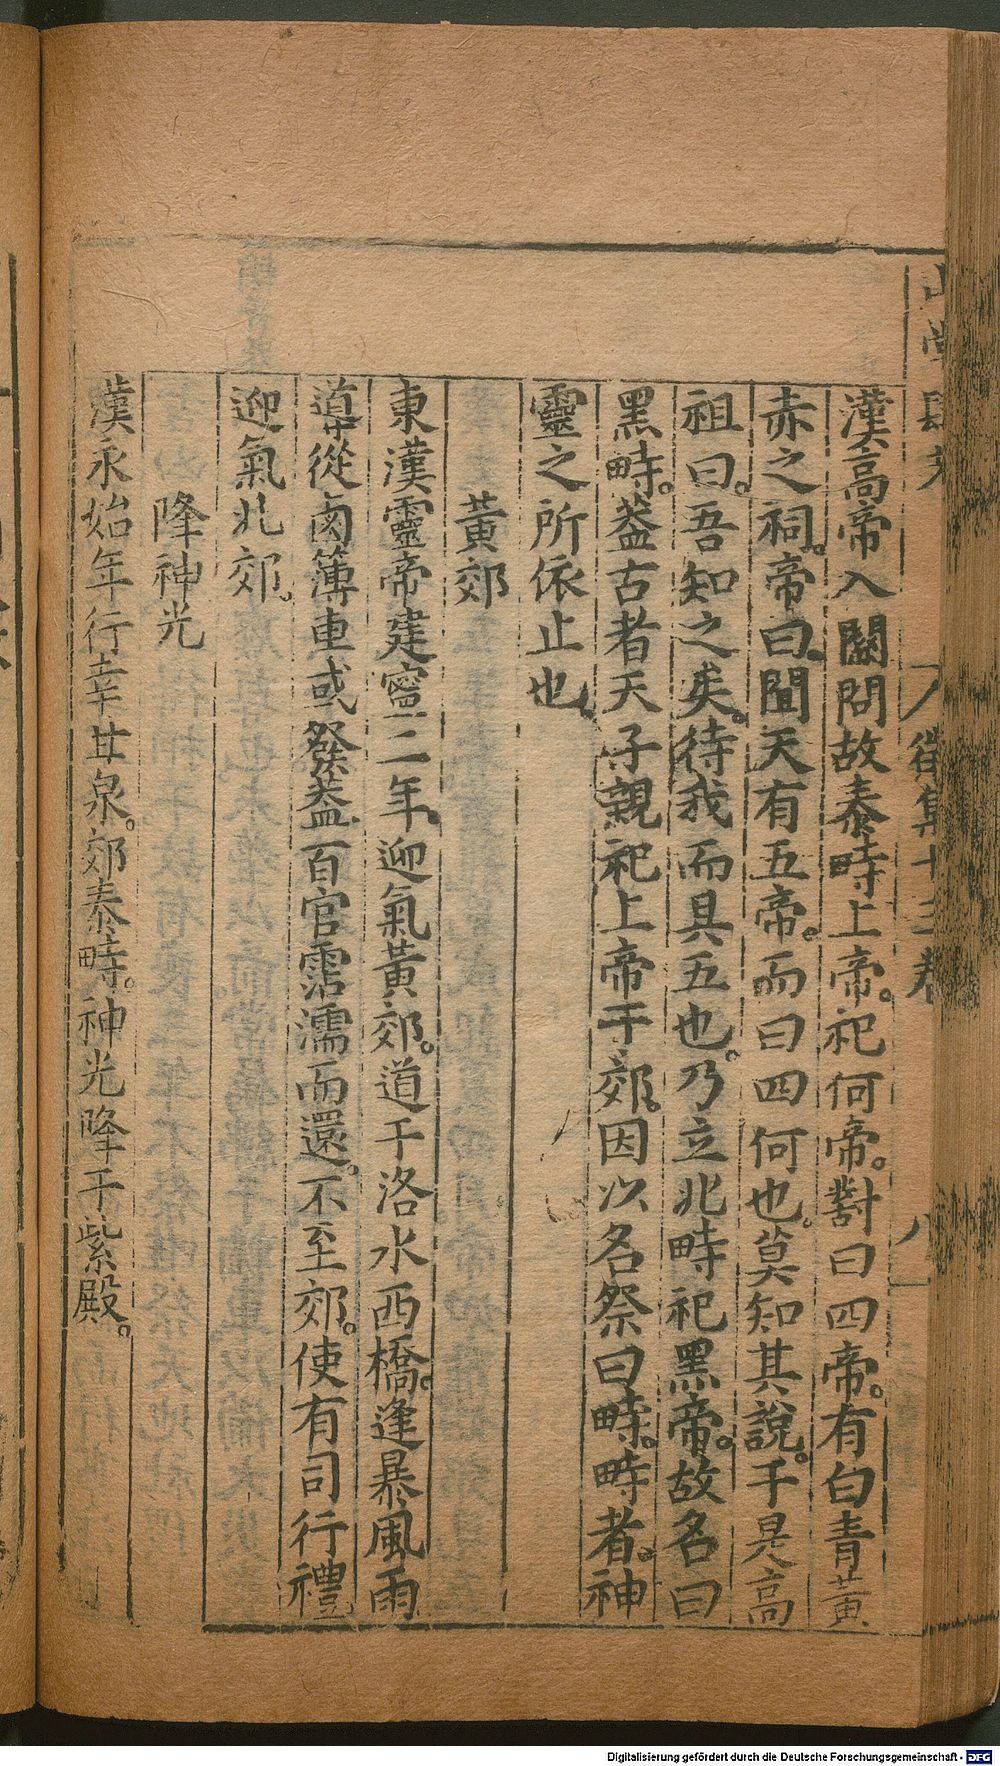 漢高帝入關問故秦時上帝。祀何帝。對曰四帝。有白青黃
赤之祠。帝曰。聞天有五帝。而曰四何也。莫知其說。于是高
祖曰。吾知之矣。待我而具五也。乃立北畤祀黑帝。故名曰
黑畤。葢古者天子親祀上帝于郊。因以名祭曰畤。畤者。神
靈之所依止也。
黃郊
東漢靈帝建寧二年。迎氣黃郊。道于洛水西橋。逢暴風雨
導從鹵簿車或發葢百官霑濡而還。不至郊。使有司行禮
迎氣北郊。
降神光
漢永始年行幸甘泉。郊泰畤。神光降于紫殿。
徵集十三卷
八
Digitalisierung gefördert durch die Deutsche Forschungsgemeinschaft - DFG